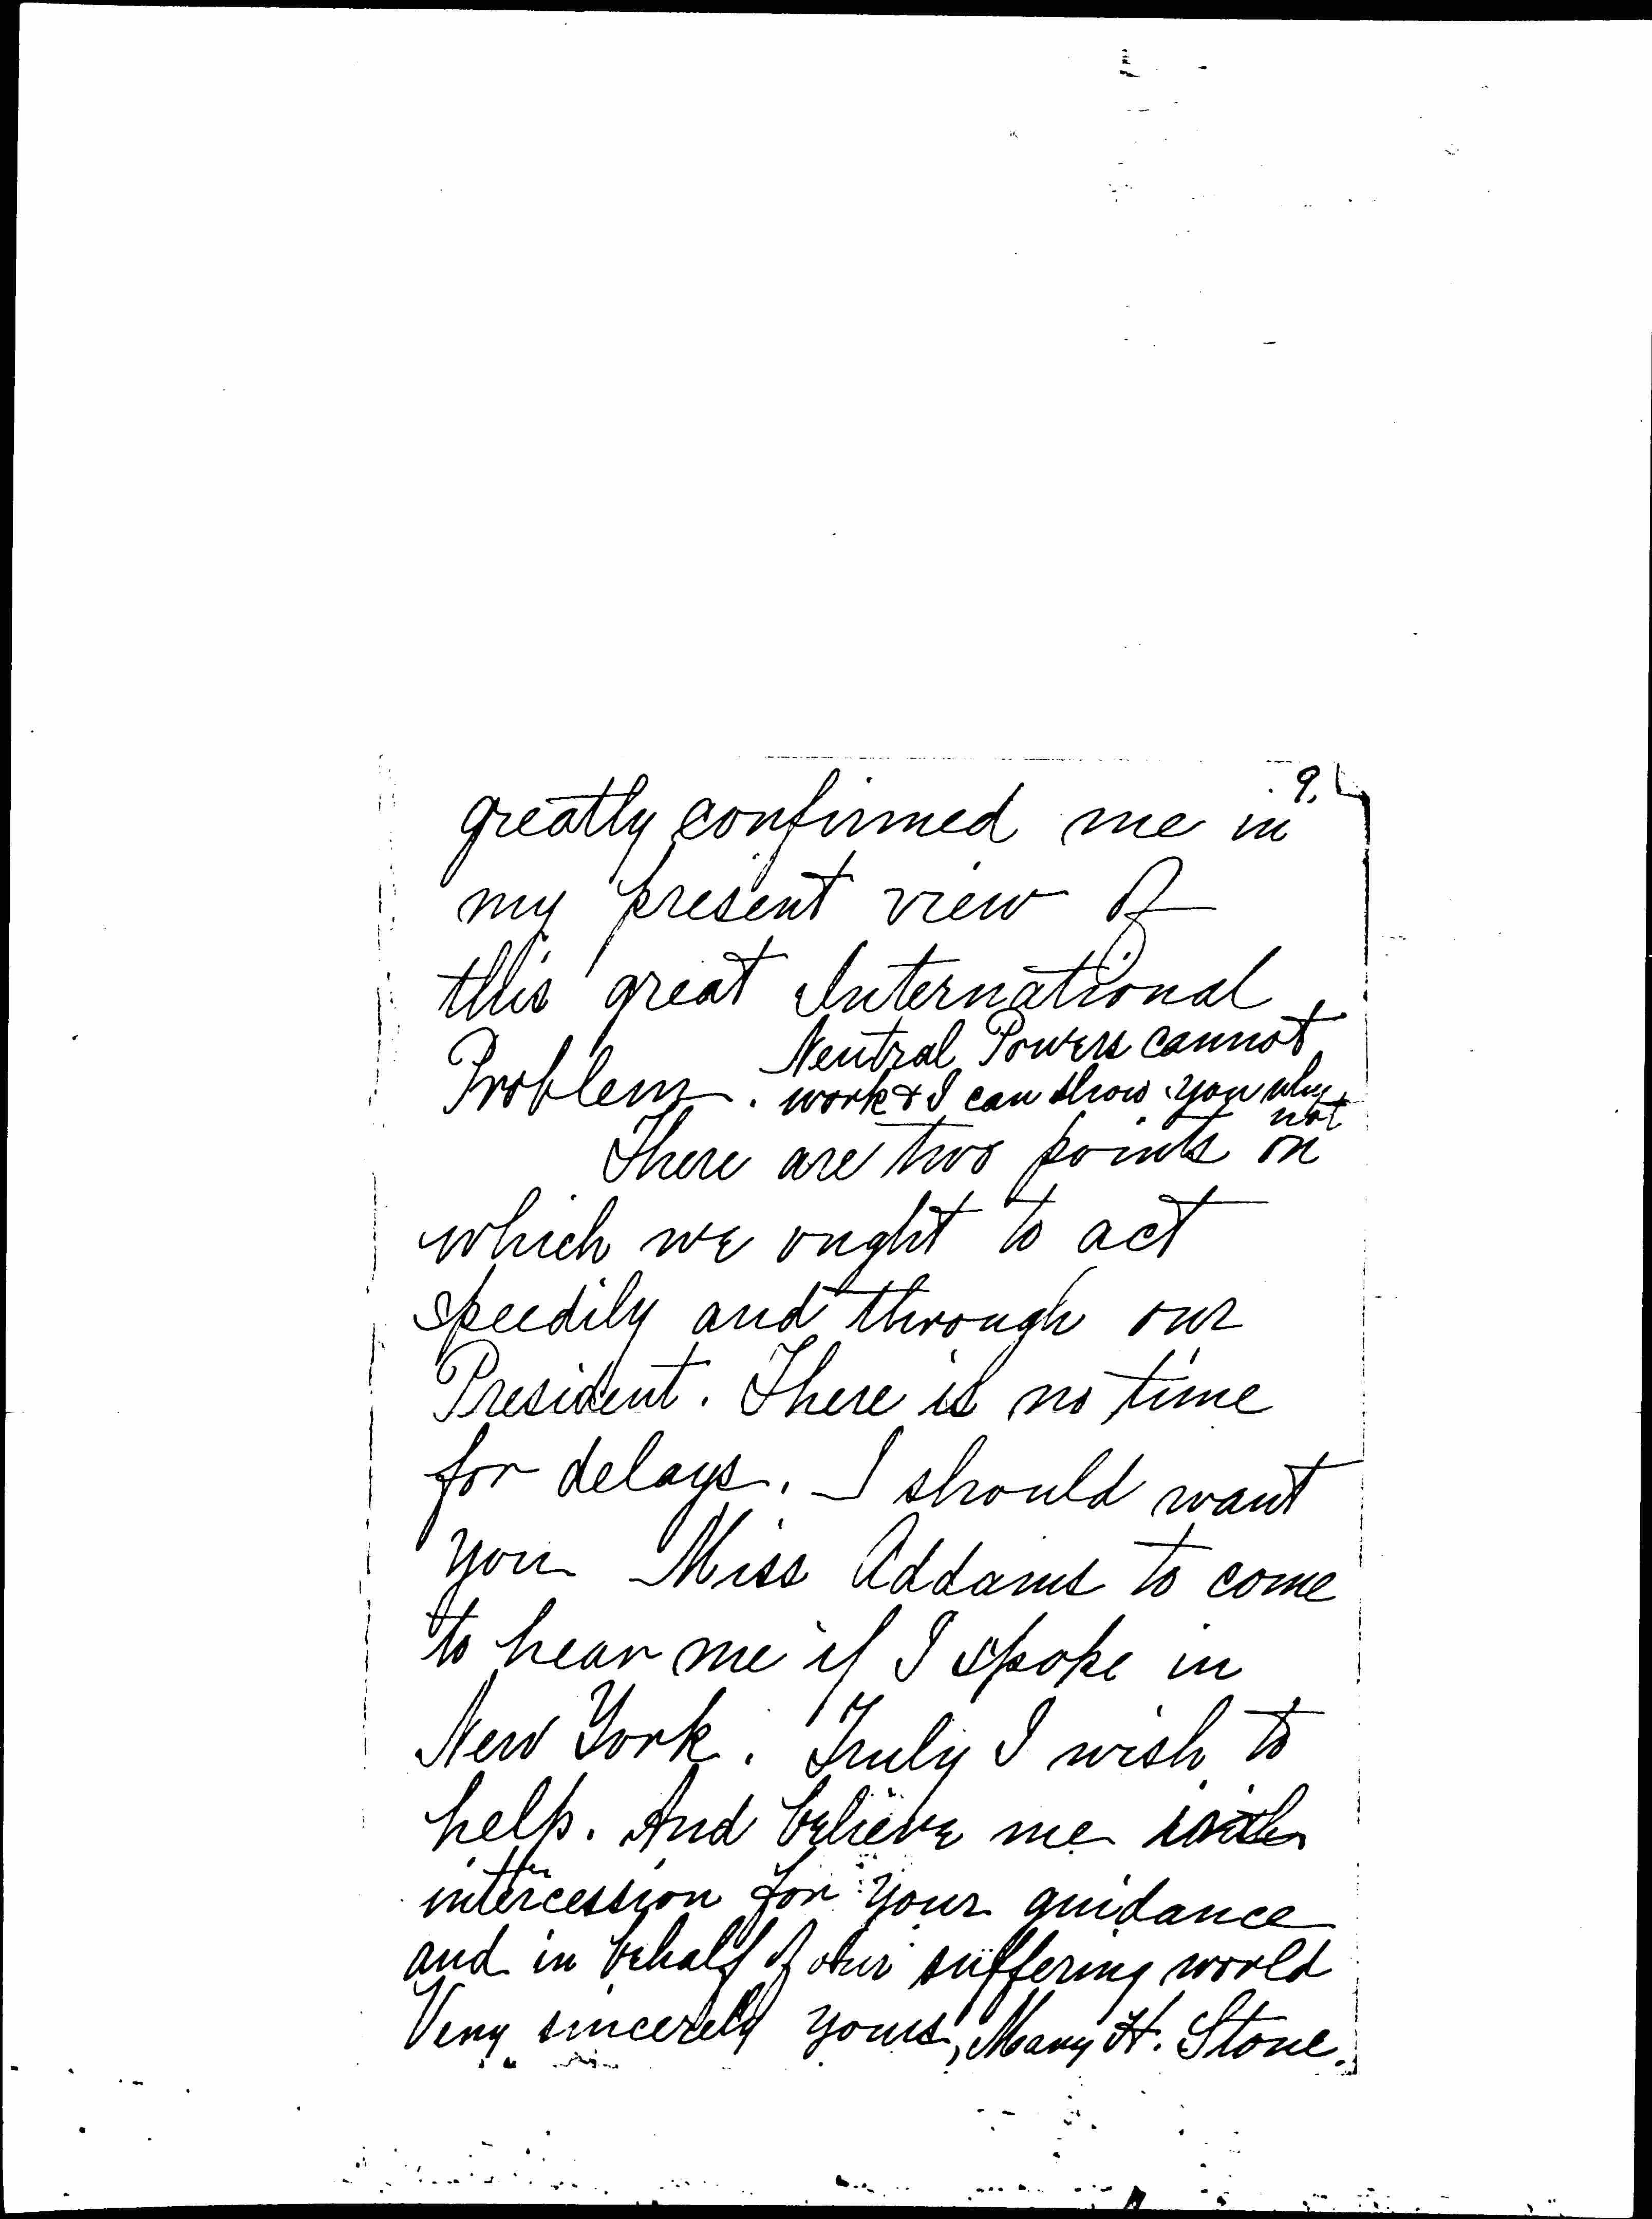 9.
greatly confirmed me in
my present view of
this great International
Problem. Neutral Powers cannot
work & I can show you why
not
There are two points on
which we ought to act
speedily and through our
President. There is no time
for delays. I should want
you Miss Addams to come
to hear me if I spoke in
New York. Truly I wish to
help. And believe me with
intercession for your guidance
and in behalf of our suffering world
Very sincerely yours, Mary H. Stone.